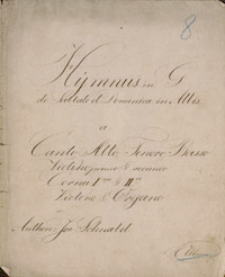 8
Hymnus in G
de Sabbato et Dominica in Albis
a
Canto Alto Tenore Basso
Violino primo & secundo
Corna I mo & II do
Violone & Organo
Authore Jos Schnabel